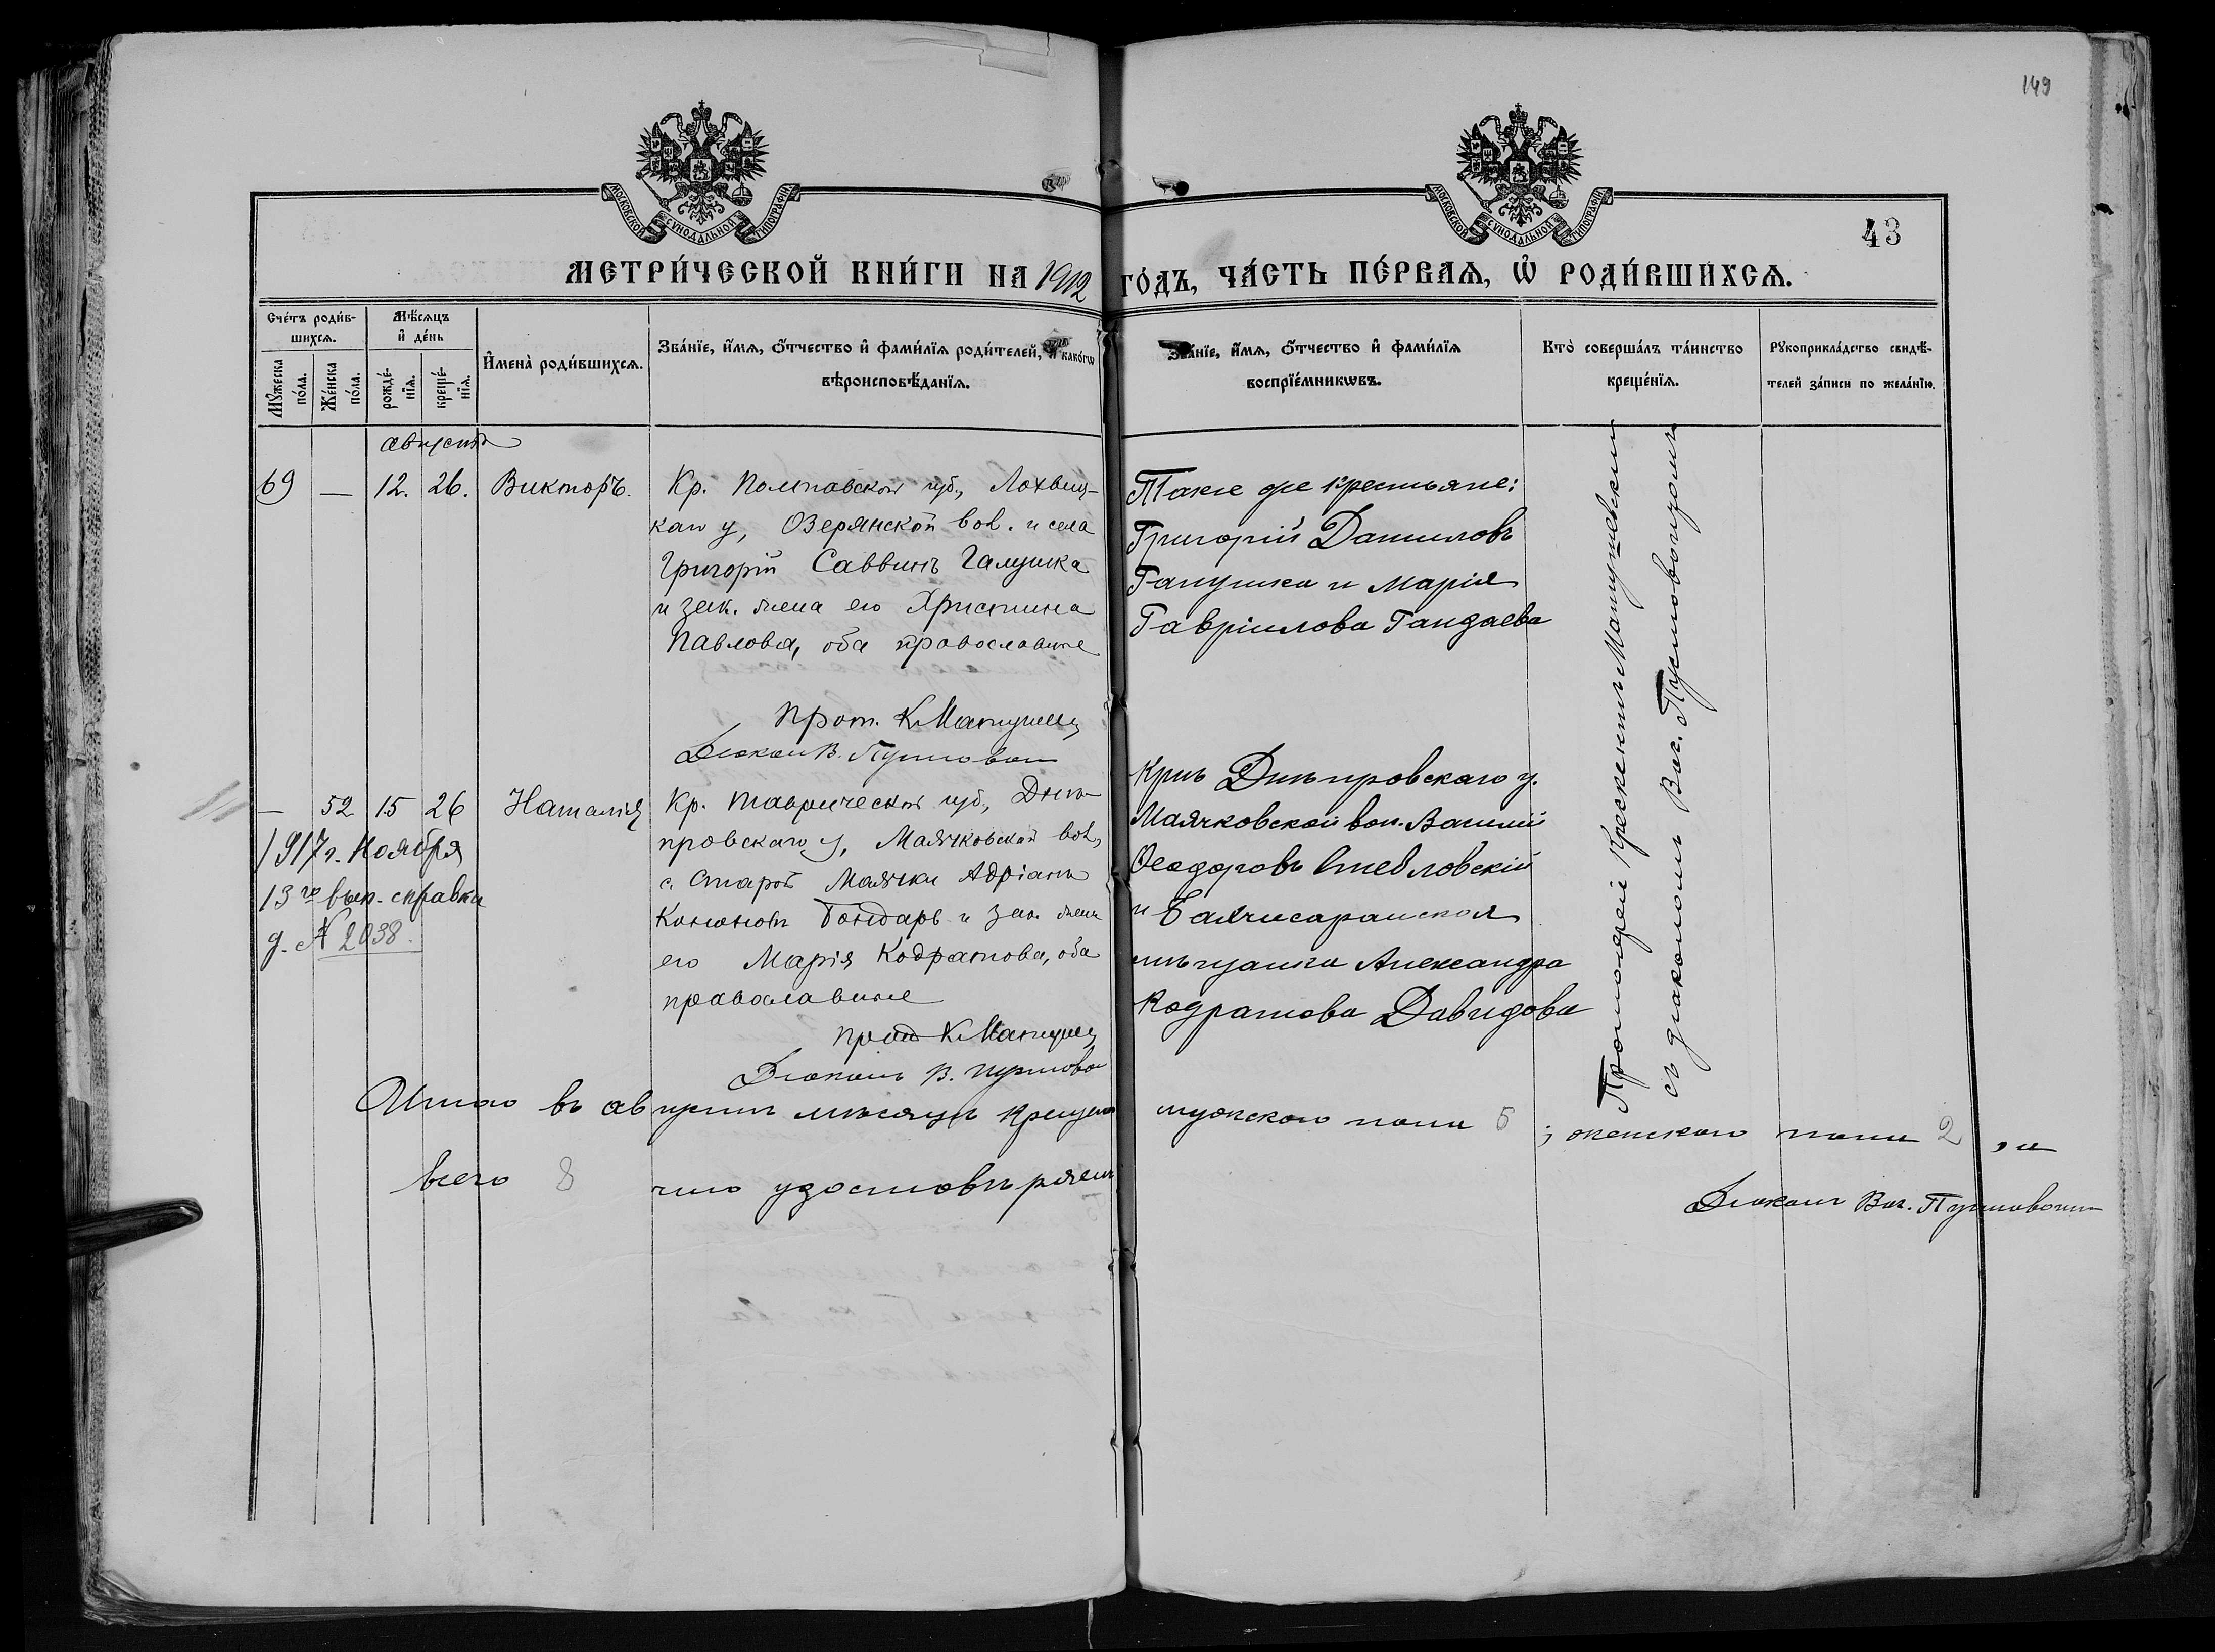 149
МОСКОВСКОЙ СѴНОДАЛЬНОЙ ТИПОГРАФІИ
МОСКОВСКОЙ СѴНОДАЛЬНОЙ ТИПОГРАФІИ
43
МЕТРИ́ЧЕСКОЙ КНИ́ГИ НА 1912 ГО́ДЪ, ЧА́СТЬ ПЕ́РВАѦ, Ѽ РОДИ́ВШИХСѦ.
Сче́тъ роди́в-
шихсѧ.
Мꙋ́жеска по́ла.
Же́нска по́ла.
Мѣ́сѧцъ
и҆ де́нь
рожде́-
нїѧ.
креще́-
нїѧ.
И҆мена̀ роди́вшихсѧ.
Зва́нїе, и҆́мѧ, ѻ҆́тчество и҆ фами́лїѧ роди́телей, и҆ како́гѡ
вѣроисповѣ́данїѧ.
Зва́нїе, и҆́мѧ, ѻ҆́тчество и҆ фами́лїѧ
воспрїе́мникѡвъ.
Кто̀ соверша́лъ та́инство
креще́нїѧ.
Рꙋкоприкла́дство свидѣ́-
телей за́писи по жела́нїю.
августа
69 — 12. 26. Викторъ.
Кр. Полтавской губ., Лохвиц-
каго у, Озерянской вол. и села
Григорій Саввинъ Галушка
и зак. жена его Христина
Павлова, оба православные
Прот. К. Матушев
Діаконъ В. Пустовой
Такіе же крестьяне:
Григорій Даниловъ
Галушка и Марія
Гавріилова Гандаева
— 52 15 26 Наталія
1917 г. Ноября
13го вып. справка
д. № 2038.
Кр. Таврической губ., Днѣ-
провскаго у, Маячковской вол,
с. Старой Маячки Адріанъ
Кононовъ Бондарь и зак. жена
его Марія Кодратова, оба
православные
прот К. Матушев
Діаконъ В. Пустово
Кр-нъ Днѣпровскаго у.
Маячковской вол. Василій
Ѳеодоровъ Стебловскій
и Бахчисарайская
мѣщанка Александра
Кодратова Давидова
Протоіерей Крескентъ Матушевскій
съ діакономъ Вас. Пустовойтомъ
Итого въ августѣ мѣсяцѣ крещено мужского пола 6; женскаго пола 2, и
всего 8 что удостовѣряемъ
Діаконъ Вас. Пустовойтъ